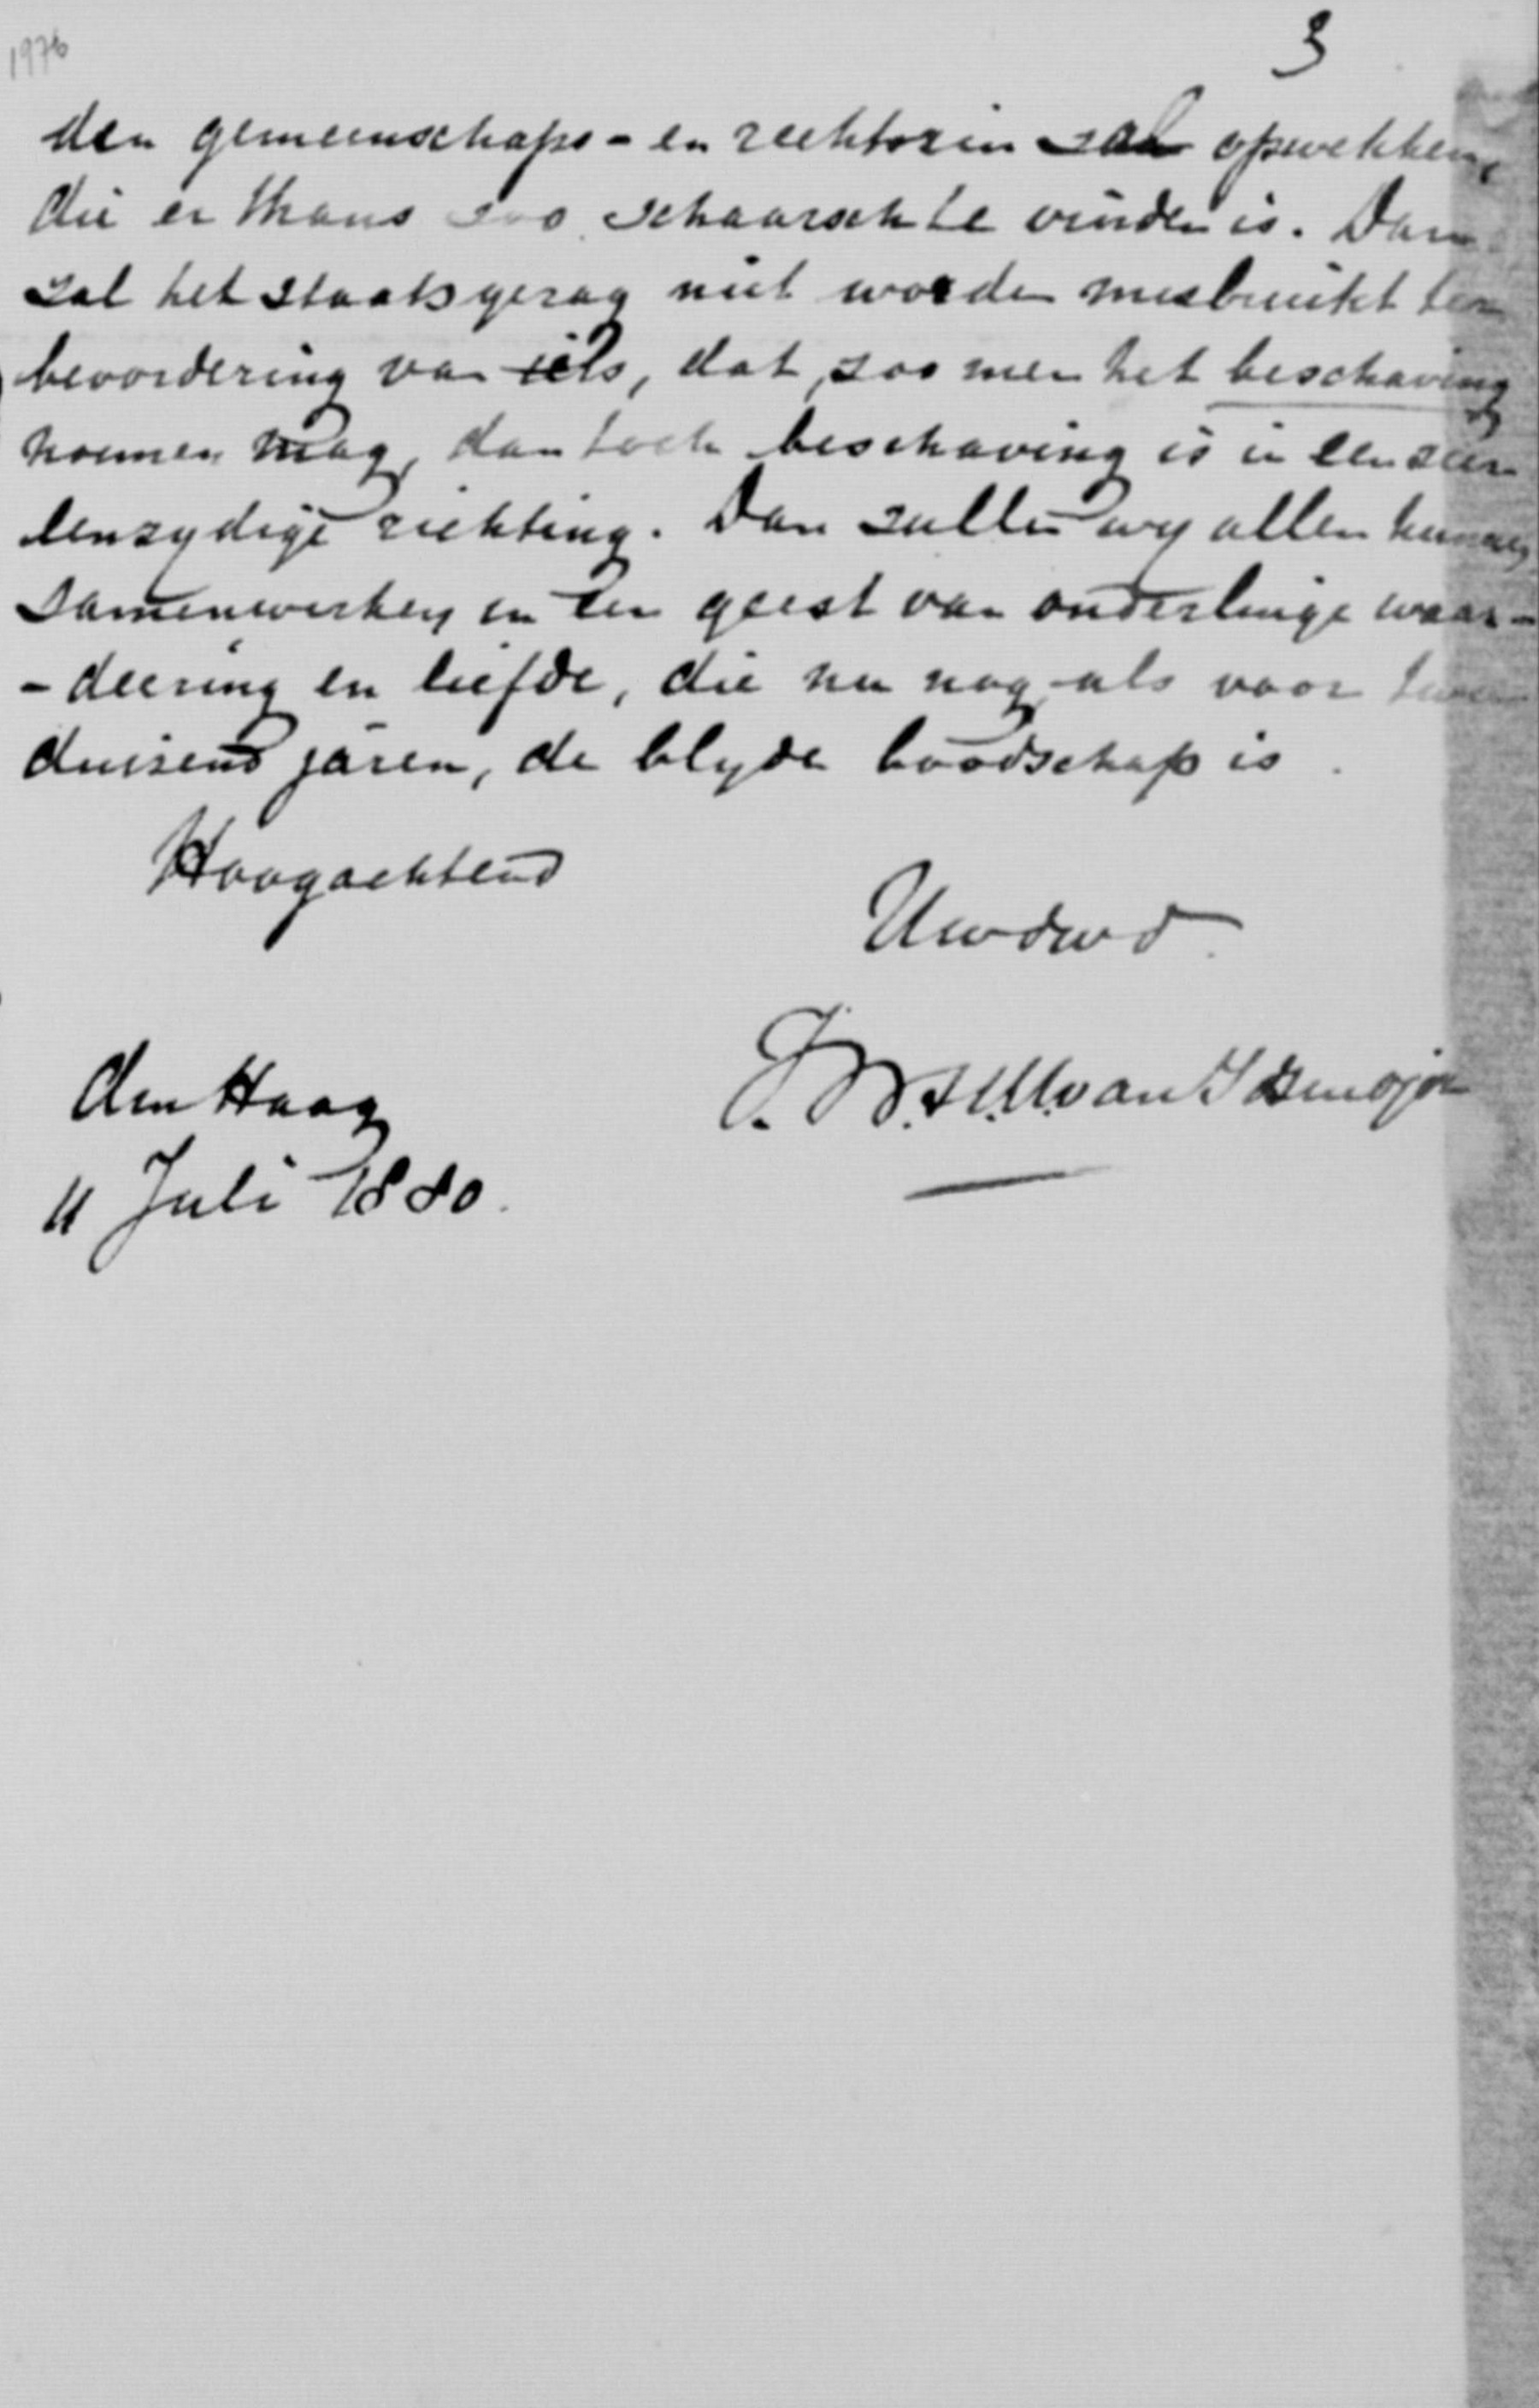 1976
3
den gemeenschaps- en rechtszin zal opwekken,
die er thans zoo schaarsch te vinden is. Dan
zal het staatsgezag niet worden misbruikt ter
bevordering van iets, dat, zoo men het beschaving
noemen mag, dan toch beschaving is in een zeer
eenzydige richting. Dan zullen wy allen kunnen
samenwerken in den geest van onderlinge waar-
-deering en liefde, die nu nog als voor
duizend jaren, de blyde boodschap is.
Hoogachtend
Uwdwd
van
den Haag
11 Juli 1880.